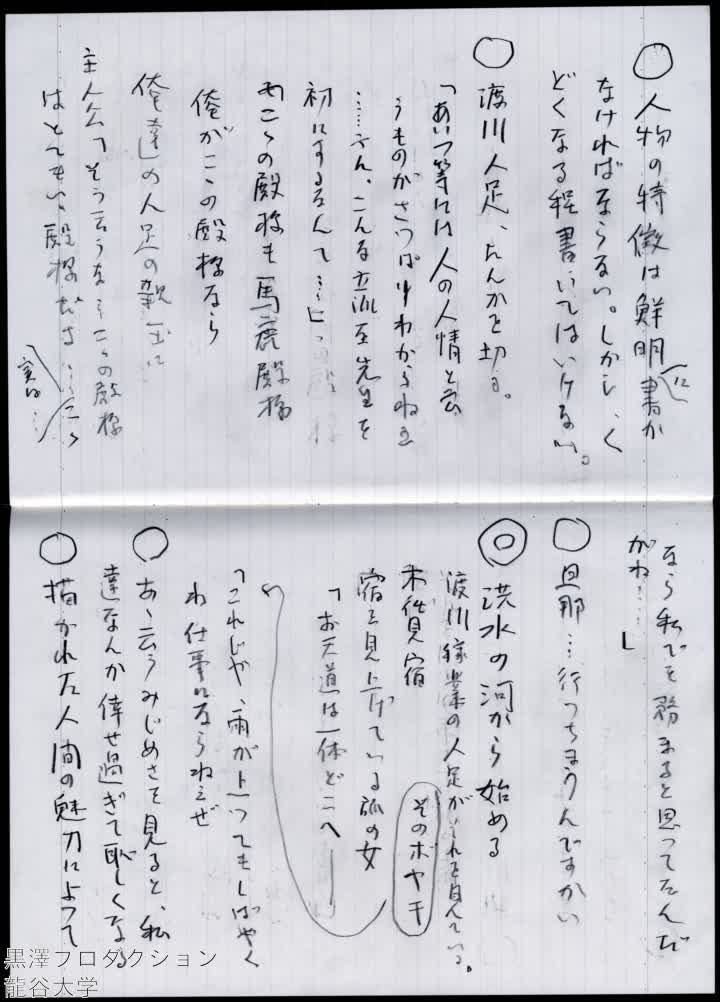 ○人物の特徴は鮮明に書か
なければならない。しかし、く
どくなる程書いてはいけない。
○渡川人足、たんかを切る。
「あいつ等には人の人情と云
うものがさっぱりわからねえ
……さん、こんな立派な先生を
初にするなんて……」
「こゝの殿様も馬鹿殿様
俺がこゝの殿様なら
俺達の人足の親玉に
主人公「そう云うな…こゝの殿様
はとてもいゝ殿様ださ……」
実は…
なら私でも務まると思ってたんだ
がね……」
○旦那…行っちまうんですかい
◎洪水の河から始める
渡川稼業の人足がそれを見ている。
木賃宿 そのボヤキ
宿を見上げている旅の女
「お天道は一体どこへ――」
「これじゃ、雨が上ってもしばらく
わ仕事にならねえぜ
○あゝ云うみじめさを見ると、私
達なんか倖せ過ぎて恥しくなる
○描かれた人間の魅力によって
黒澤プロダクション
龍谷大学